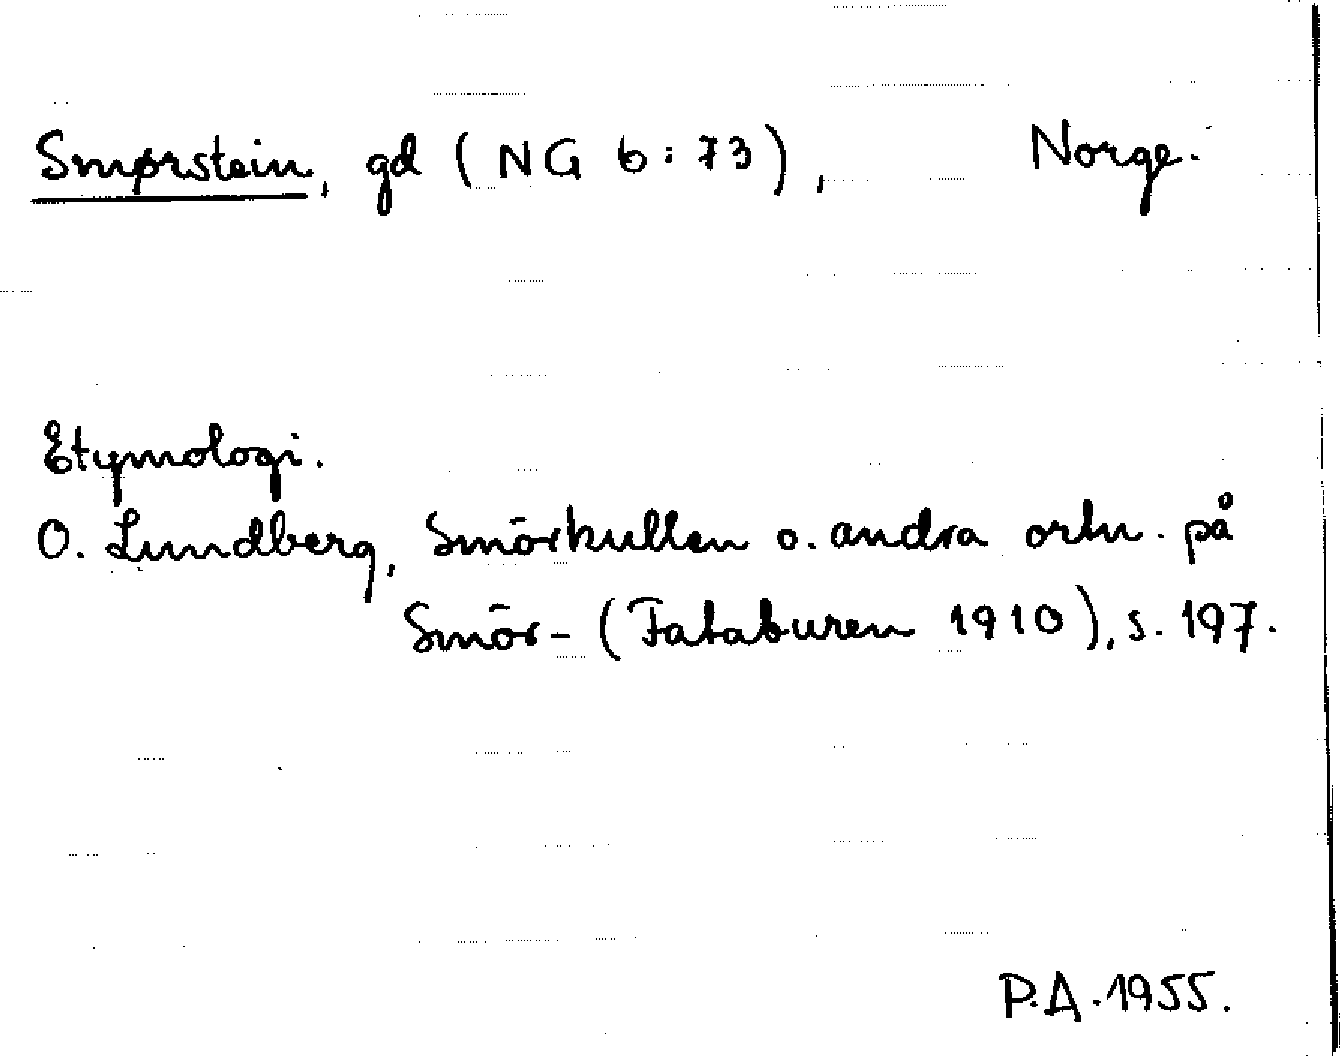 Smørstein, gd (NG 6:73), Norge.
Etymologi.
O. Lundberg, Smörkullen o. andra ortn. på
Smör- (Fataburen 1910), s. 197.
P.A. 1955.